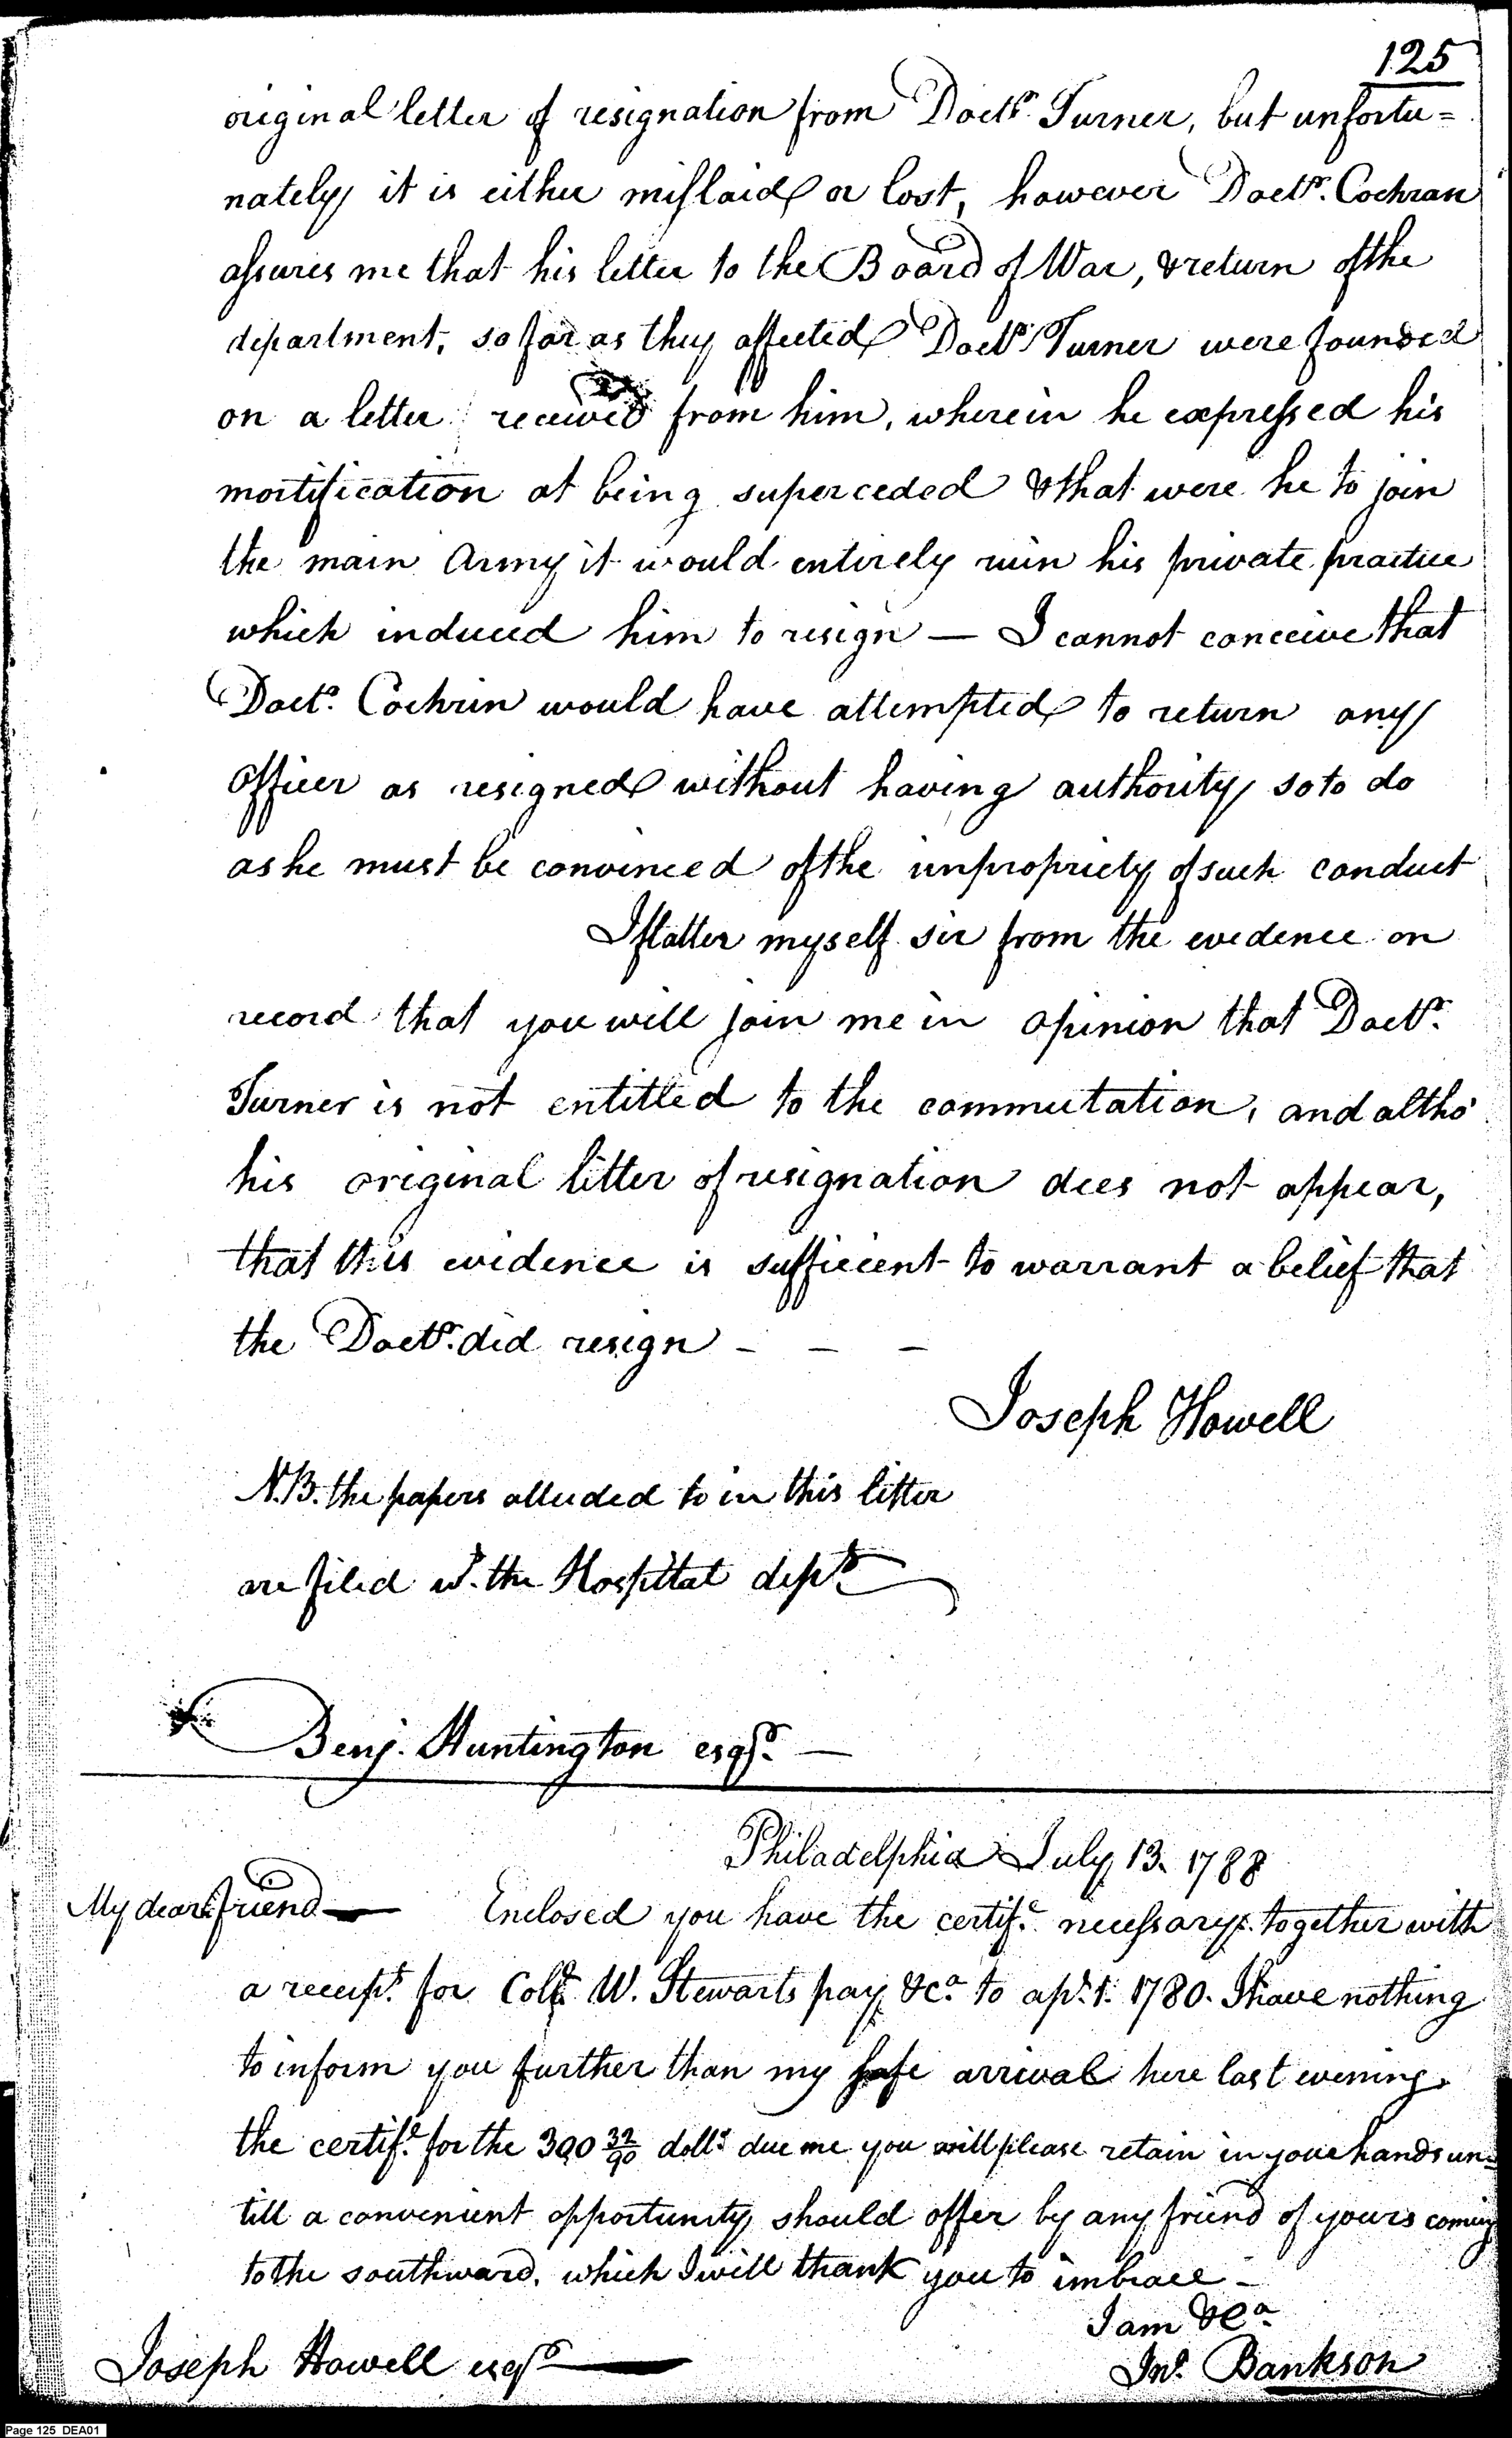 125
original letter of resignation from Doctr. Turner, but unfortu=
nately it is either mislaid or lost, however Doctr. Cochran
assures me that his letter to the Board of War, & return of the
department, so far as they affected Doctr. Turner were founded
on a letter received from him, wherein he expressed his
mortification at being superceded & that were he to join
the main Army it would entirely ruin his private practice
which induced him to resign — I cannot conceive that
Doctr. Cochrin would have attempted to return any
officer as resigned without having authority so to do
as he must be convinced of the unpropriety of such conduct
I flatter myself sir from the evidence on
record that you will join me in opinion that Doctr.
Turner is not entitled to the commutation, and altho'
his original letter of resignation does not appear,
that this evidence is sufficient to warrant a belief that
the Doctr. did resign - - -
Joseph Howell
N.B. the papers alluded to in this letter
are filed w. the Hospittal dept.
Benj. Huntington esqr. —
Philadelphia July 13. 1788
My dear friend — Enclosed you have the certife. necessary. together with
a receipt. for Coll. W. Stewarts pay &ca. to apl. 1. 1780. I have nothing
to inform you further than my safe arrival here last evening.
the certife. for the 390 32/90 dolls. due me you will please retain in your hands un=
till a convenient opportunity should offer by any friend of yours coming
to the southward. which I will thank you to imbrace -
I am &ca.
Joseph Howell esqr. — Jno. Bankson
Page 125 DEA01